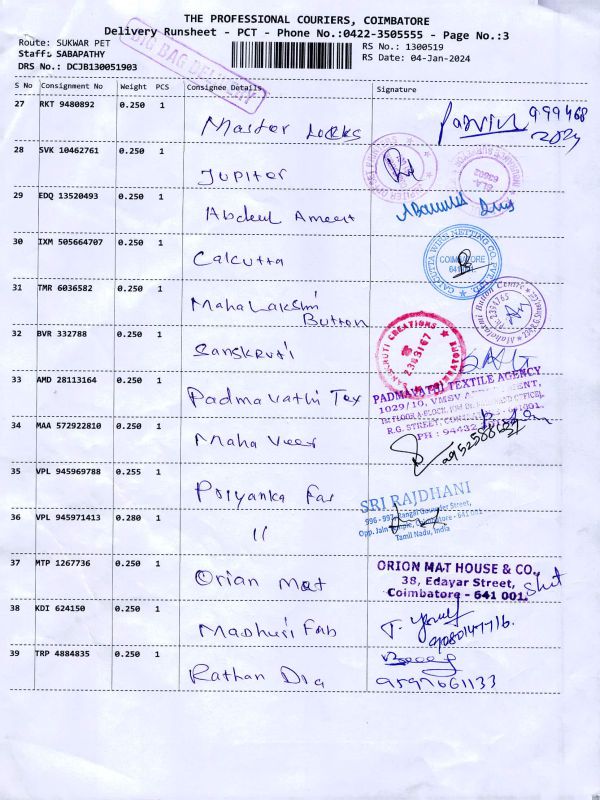 THE PROFESSIONAL COURIERS, COIMBATORE
Delivery Runsheet - PCT - Phone No.:0422-3505555 - Page No.:3
Route: SUKWAR PET
RS No.: 1300519
Staff: SABAPATHY
RS Date: 04-Jan-2024
DRS No.: DCJB130051903
BIG BAG DELIVERY
S No Consignment No Weight PCS Consignee Details Signature
27 RKT 9480892 0.250 1
Master Locks
28 SVK 10462761 0.250 1
Jupiter
29 EDQ 13520493 0.250 1
Abdeul Ameer
30 IXM 505664707 0.250 1
Calcutta
CALCUTTA WIRE NETTING CO. PVT. LTD.
COIMBATORE
641 001
31 TMR 6036582 0.250 1
MahaLakshmi
Button
Mahalaxmi Button Centre
2394765
32 BVR 332788 0.250 1
Sanskruti
CREATIONS
2383167
33 AMD 28113164 0.250 1
Padmavathi Tex
PADMAVATHI TEXTILE AGENCY
1029/10, VMSV
R.G. STREET,
34 MAA 572922810 0.250 1
Maha Veer
35 VPL 945969788 0.255 1
Priyanka Fas
SRI RAJDHANI
996 - 997, Rangai Gowder Street,
Opp. Jain Temple, Coimbatore - 641 001
Tamil Nadu, India
36 VPL 945971413 0.280 1
11
37 MTP 1267736 0.250 1
Orian Mat
ORION MAT HOUSE & CO.,
38, Edayar Street,
Coimbatore - 641 001.
38 KDI 624150 0.250 1
Madhuri Fab
39 TRP 4884835 0.250 1
Rathan Dia
9597661133